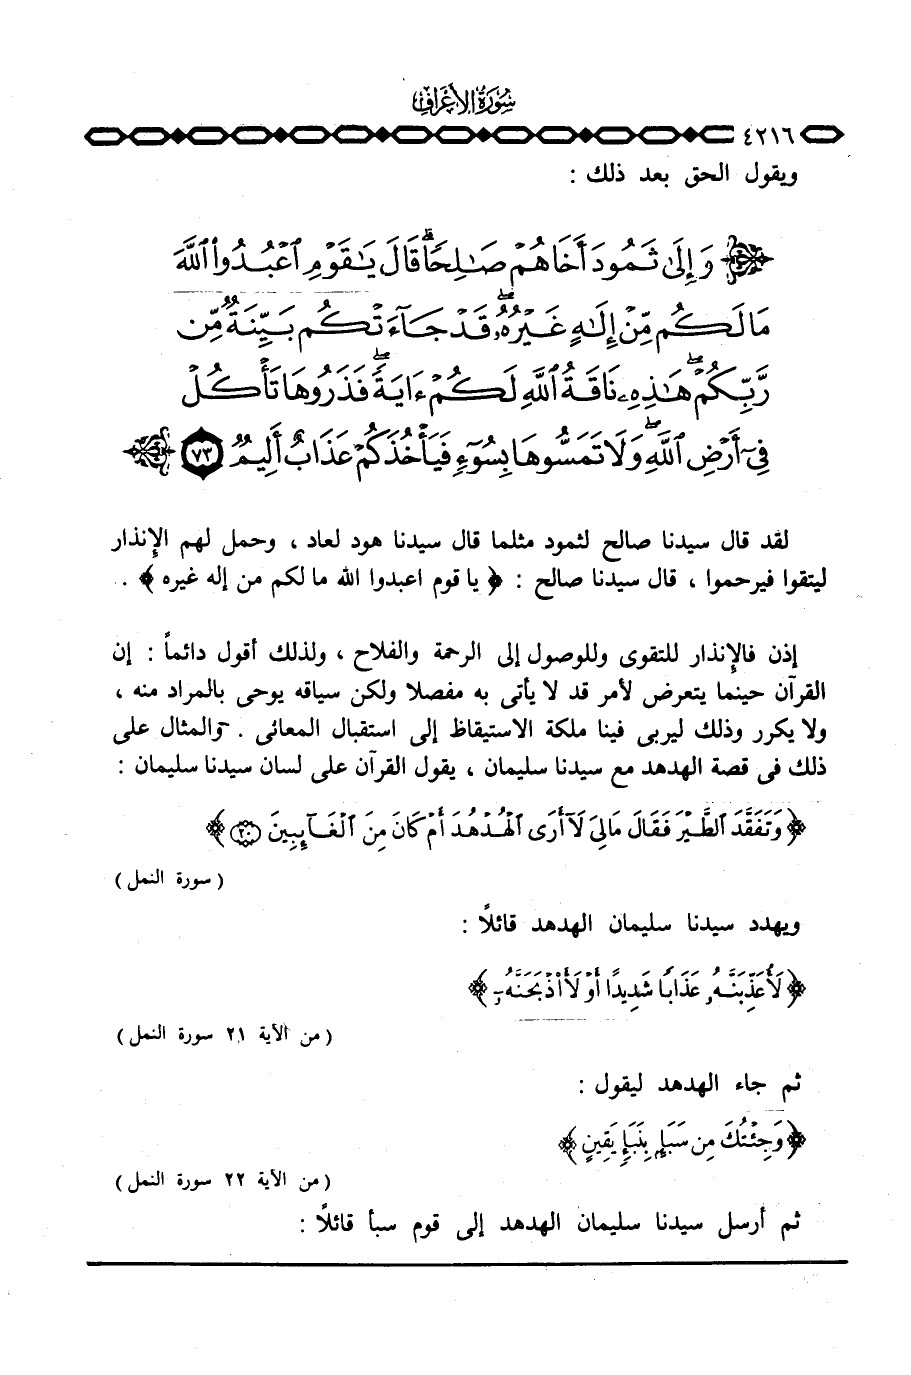 سُورَةُ الأَعْرَافِ
٤٢١٦
ويقول الحق بعد ذلك :
وَإِلَىٰ ثَمُودَ أَخَاهُمْ صَـٰلِحًاۗ قَالَ يَـٰقَوْمِ ٱعْبُدُوا۟ ٱللَّهَ
مَا لَكُم مِّنْ إِلَـٰهٍ غَيْرُهُۥۖ قَدْ جَآءَتْكُم بَيِّنَةٌ مِّن
رَّبِّكُمْۖ هَـٰذِهِۦ نَاقَةُ ٱللَّهِ لَكُمْ ءَايَةًۖ فَذَرُوهَا تَأْكُلْ
فِىٓ أَرْضِ ٱللَّهِۖ وَلَا تَمَسُّوهَا بِسُوٓءٍ فَيَأْخُذَكُمْ عَذَابٌ أَلِيمٌ ٧٣
لقد قال سيدنا صالح لثمود مثلما قال سيدنا هود لعاد ، وحمل لهم الإنذار
ليتقوا فيرحموا ، قال سيدنا صالح : ﴿ يا قوم اعبدوا الله ما لكم من إله غيره ﴾ .
إذن فالإنذار للتقوى وللوصول إلى الرحمة والفلاح ، ولذلك أقول دائماً : إن
القرآن حينما يتعرض لأمر قد لا يأتى به مفصلا ولكن سياقه يوحى بالمراد منه ،
ولا يكرر وذلك ليربى فينا ملكة الاستيقاظ إلى استقبال المعانى . والمثال على
ذلك فى قصة الهدهد مع سيدنا سليمان ، يقول القرآن على لسان سيدنا سليمان :
﴿ وَتَفَقَّدَ ٱلطَّيْرَ فَقَالَ مَالِىَ لَآ أَرَى ٱلْهُدْهُدَ أَمْ كَانَ مِنَ ٱلْغَآئِبِينَ ٢٠ ﴾
( سورة النمل )
ويهدد سيدنا سليمان الهدهد قائلًا :
﴿ لَأُعَذِّبَنَّهُۥ عَذَابًا شَدِيدًا أَوْ لَأَاْذْبَحَنَّهُۥٓ ﴾
( من الآية ٢١ سورة النمل )
ثم جاء الهدهد ليقول :
﴿ وَجِئْتُكَ مِن سَبَإٍ بِنَبَإٍ يَقِينٍ ﴾
( من الآية ٢٢ سورة النمل )
ثم أرسل سيدنا سليمان الهدهد إلى قوم سبأ قائلًا :